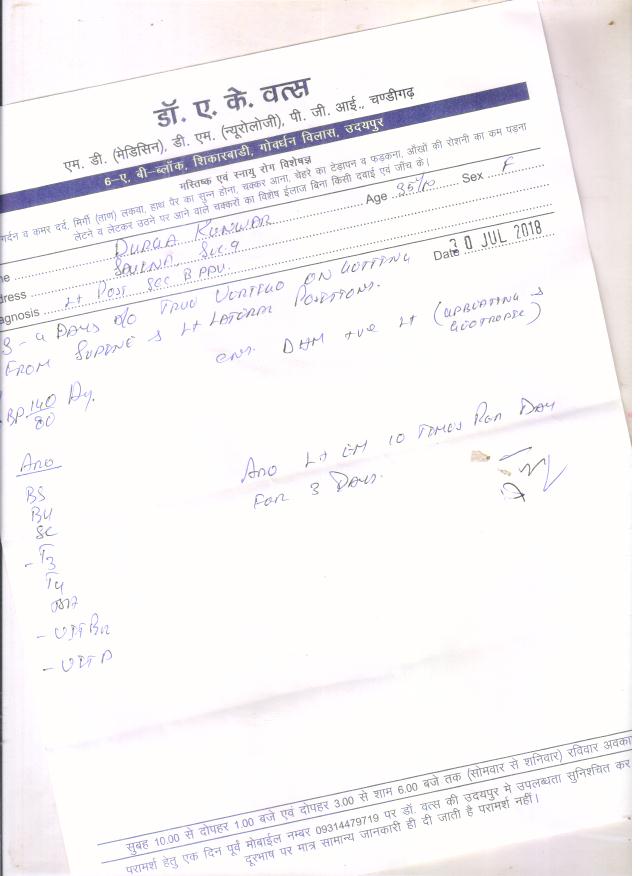 डॉ. ए. के. वत्स
एम. डी. (मेडिसिन), डी. एम. (न्यूरोलॉजी), पी. जी. आई., चण्डीगढ़
6-ए, बी-ब्लॉक, शिकारबाडी, गोवर्धन विलास, उदयपुर
मस्तिष्क एवं स्नायु रोग विशेषज्ञ
गर्दन व कमर दर्द, मिर्गी (ताण) लकवा, हाथ पैर का सुन्न होना, चक्कर आना, चेहरे का टेडापन व फड़कना, आँखों की रोशनी का कम पड़ना
लेटने व लेटकर उठने पर आने वाले चक्करों का विशेष ईलाज बिना किसी दवाई एवं जाँच के।
me DURGA KUNWAR Age 35 Sex F
dress SAVINA Sec. 9
agnosis Lt POST SCC BPPV. Date 30 JUL 2018
3-4 DAYS TRUE VERTIGO ON GETTING
FROM SUPINE LT LATERAL POSITIONS.
DHM +ve Lt (UPBEATING & GEOTROPIC)
BP. 140/80
ADV
BS
BU
SC
- T3
T4
- VIT B12
- VIT D
ADV Lt EM 10 TIMES PER DAY
FOR 3 DAYS.
सुबह 10.00 से दोपहर 1.00 बजे एवं दोपहर 3.00 से शाम 6.00 बजे तक (सोमवार से शनिवार) रविवार अवका
परामर्श हेतु एक दिन पूर्व मोबाईल नम्बर 09314479719 पर डॉ. वत्स की उदयपुर मे उपलब्धता सुनिश्चित कर
दूरभाष पर मात्र सामान्य जानकारी ही दी जाती है परामर्श नहीं।